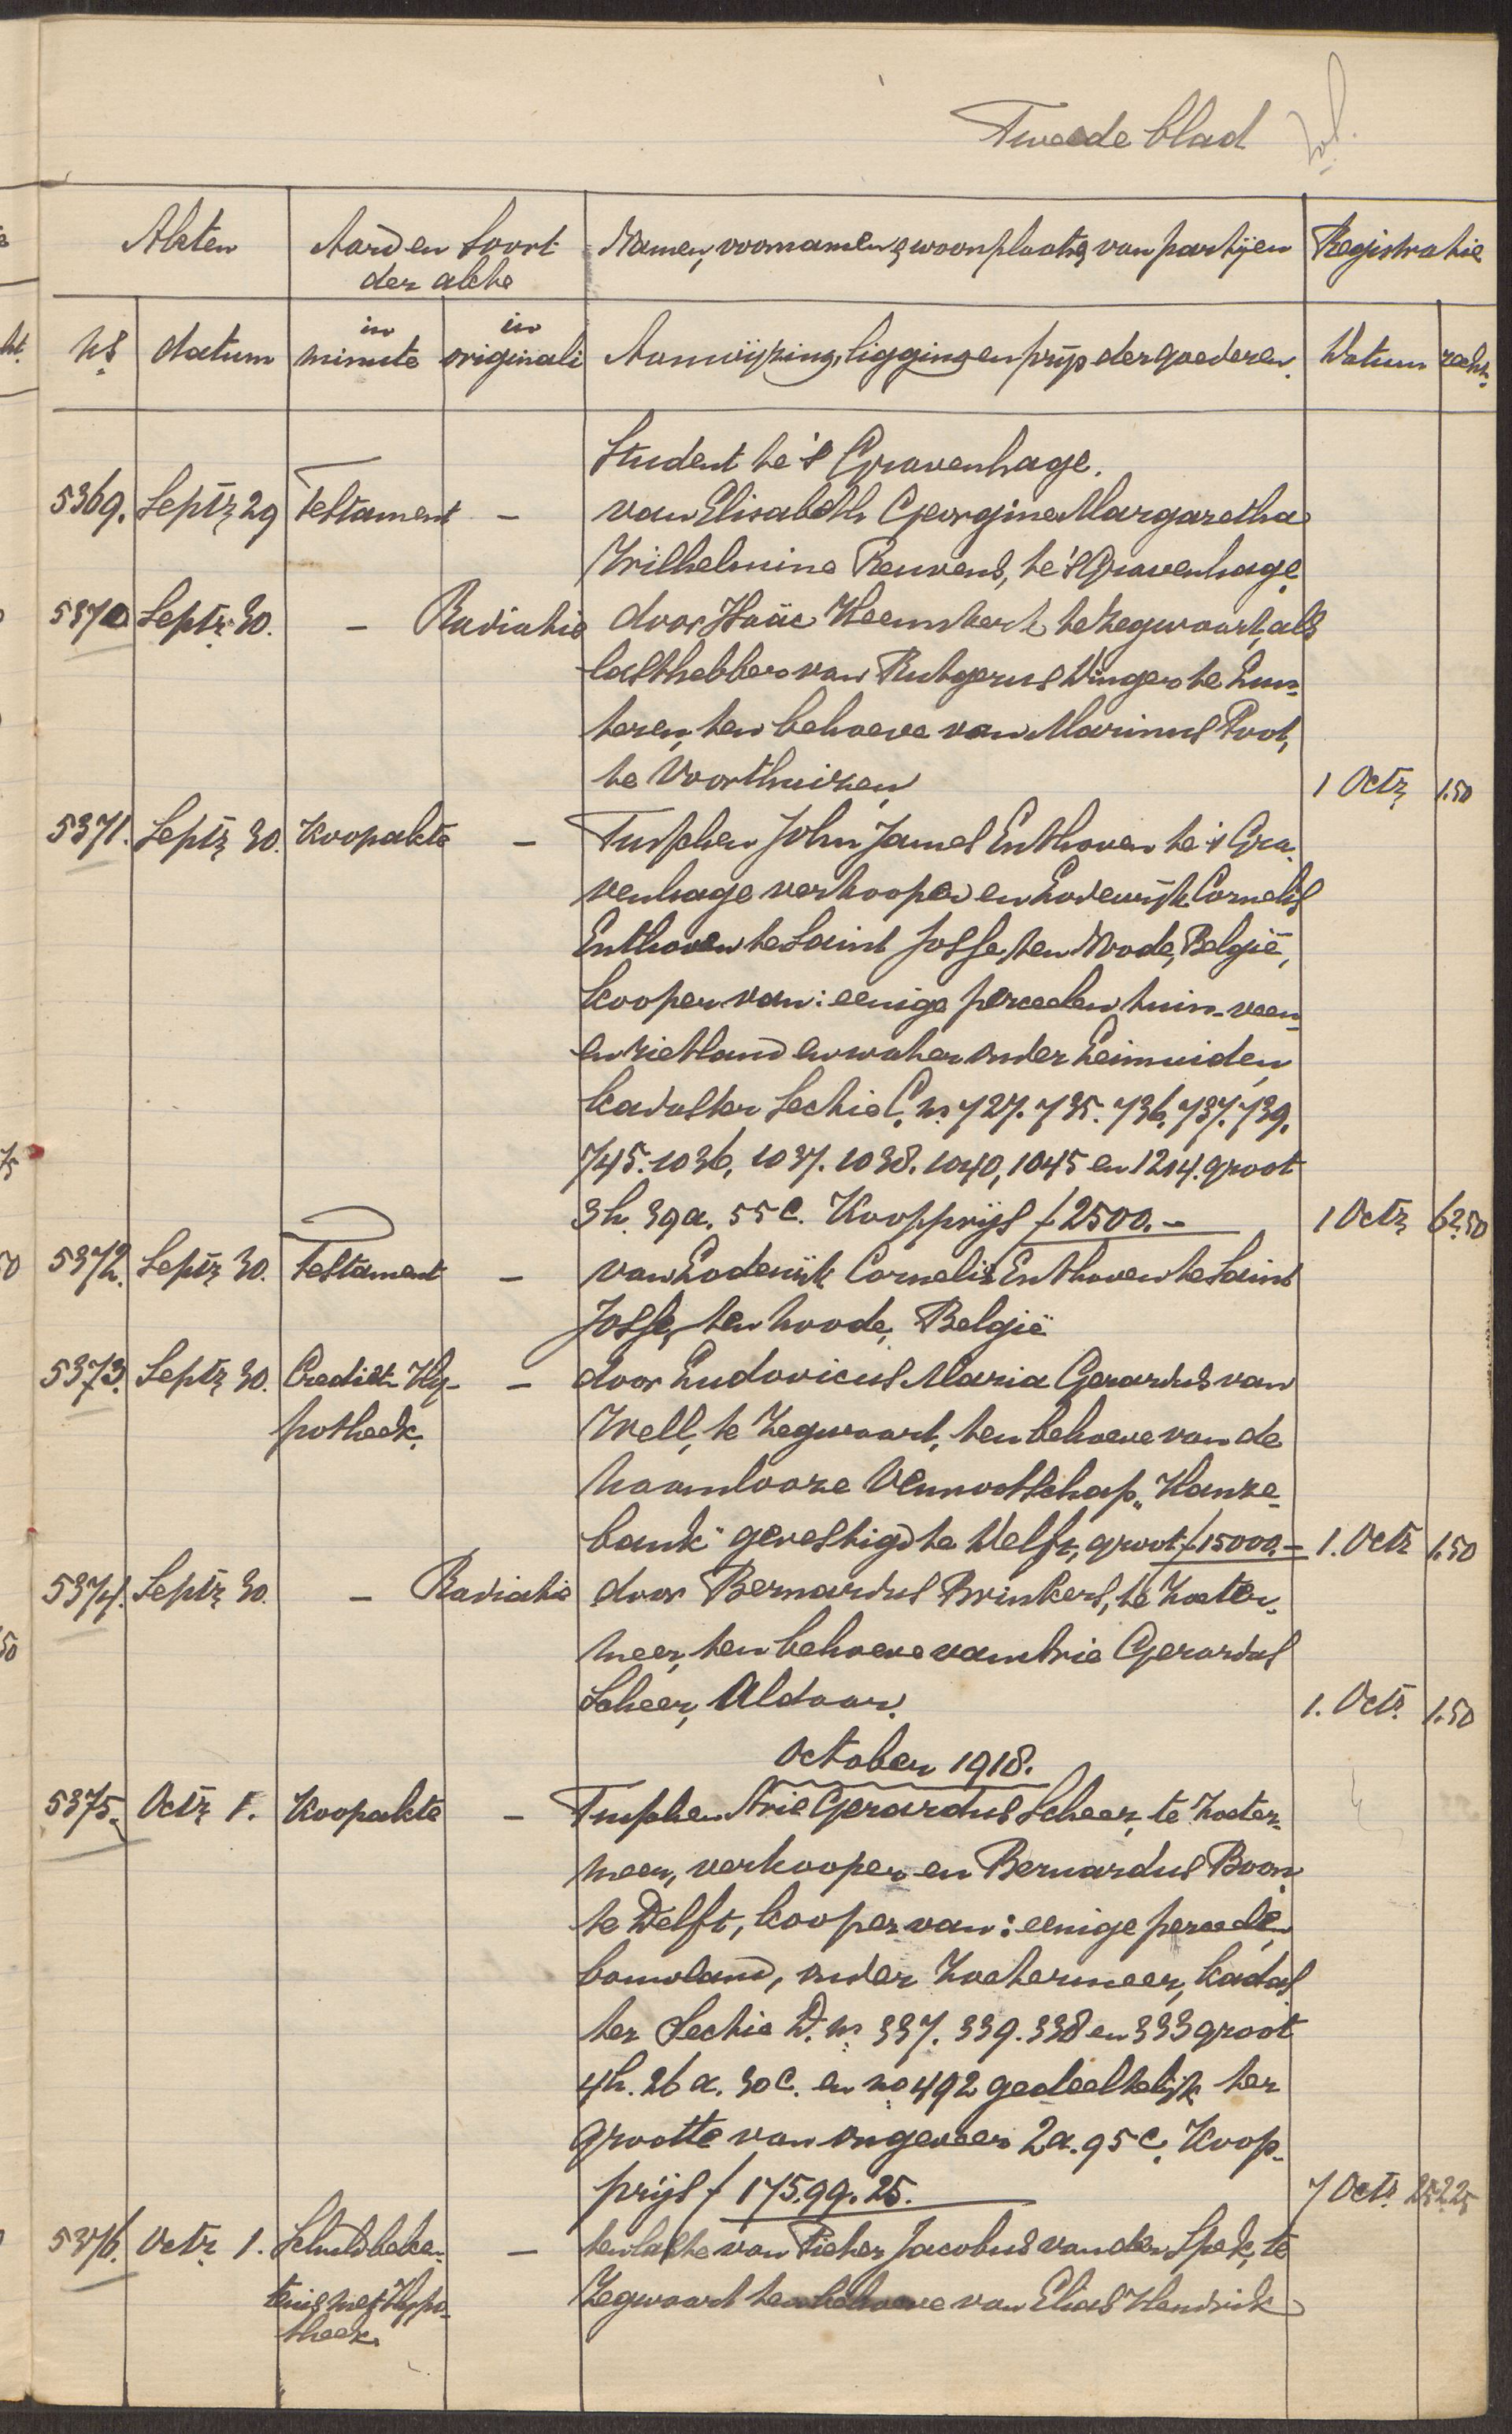 Tweede blad
Akten Aard en Soort Namen, voornamen & woonplaats van partijen Registratie
der akte
No datum in minute in originali Aanwijzing, ligging en prijs der goederen. Datum recht.
Student te 's Gravenhage.
5369. Septr 29 Testament – van Elisabeth Georgine Margaretha
Wilhelmina Reuvens, te 's Gravenhage
5370 Septr 30. – Radiatie door Isaäc Heemskerk te Zegwaart, als
lasthebber van Rutgerus Dinger te Lun-
teren, ten behoeve van Marinus Poot,
te Voorthuizen 1 Octr 1.50
5371. Septr 30. Koopakte – Tusschen John James Enthoven te 's Gra-
venhage verkooper en Lodewijk Cornelis
Enthoven te Saint Josse, ten Noode, België,
kooper van: eenige perceelen tuin- veen-
en rietland en water onder Leimuiden
kadaster Sectie C. no 727. 735. 736. 737. 739.
745. 1036, 1037. 1038. 1040, 1045 en 1214. groot
3h. 39a. 55c. Koopprijs f 2500.– 1 Octr 62.50
5372. Septr 30. Testament – van Lodewijk Cornelis Enthoven te Saint
Josse, ten noode, België
5373. Septr 30. Crediet Hy- – door Ludovicus Maria Gerardus van
potheek. Well, te Zegwaart, ten behoeve van de
naamlooze Vennootschap "Hanze-
bank" gevestigd te Delft, groot f 15000.– 1. Octr 1.50
5374. Septr 30. – Radiatie door Bernardus Brinkers, te Zoeter-
meer, ten behoeve van Arie Gerardus
Scheer, Aldaar. 1. Octr. 1.50
October 1918.
5375. Octr 1. Koopakte – Tusschen Arie Gerardus Scheer, te Zoeter-
meer, verkooper en Bernardus Boon
te Delft, kooper van: eenige perceelen
bouwland, onder Zoetermeer, kadas
ter Sectie D. no 337. 339. 338 en 333 groot
4h. 26 a. 30 c. en no 492 gedeeltelijk ter
grootte van ongeveer 2a. 95 c. Koop-
prijs f 175.99.25. 7 Octr. 252.25
5376. Octr. 1. Schuldbeken- – ten laste van Pieter Jacobus van der Spek, te
tenis met Hypo- Zegwaart ten behoeve van Elias Hendrik
theek.